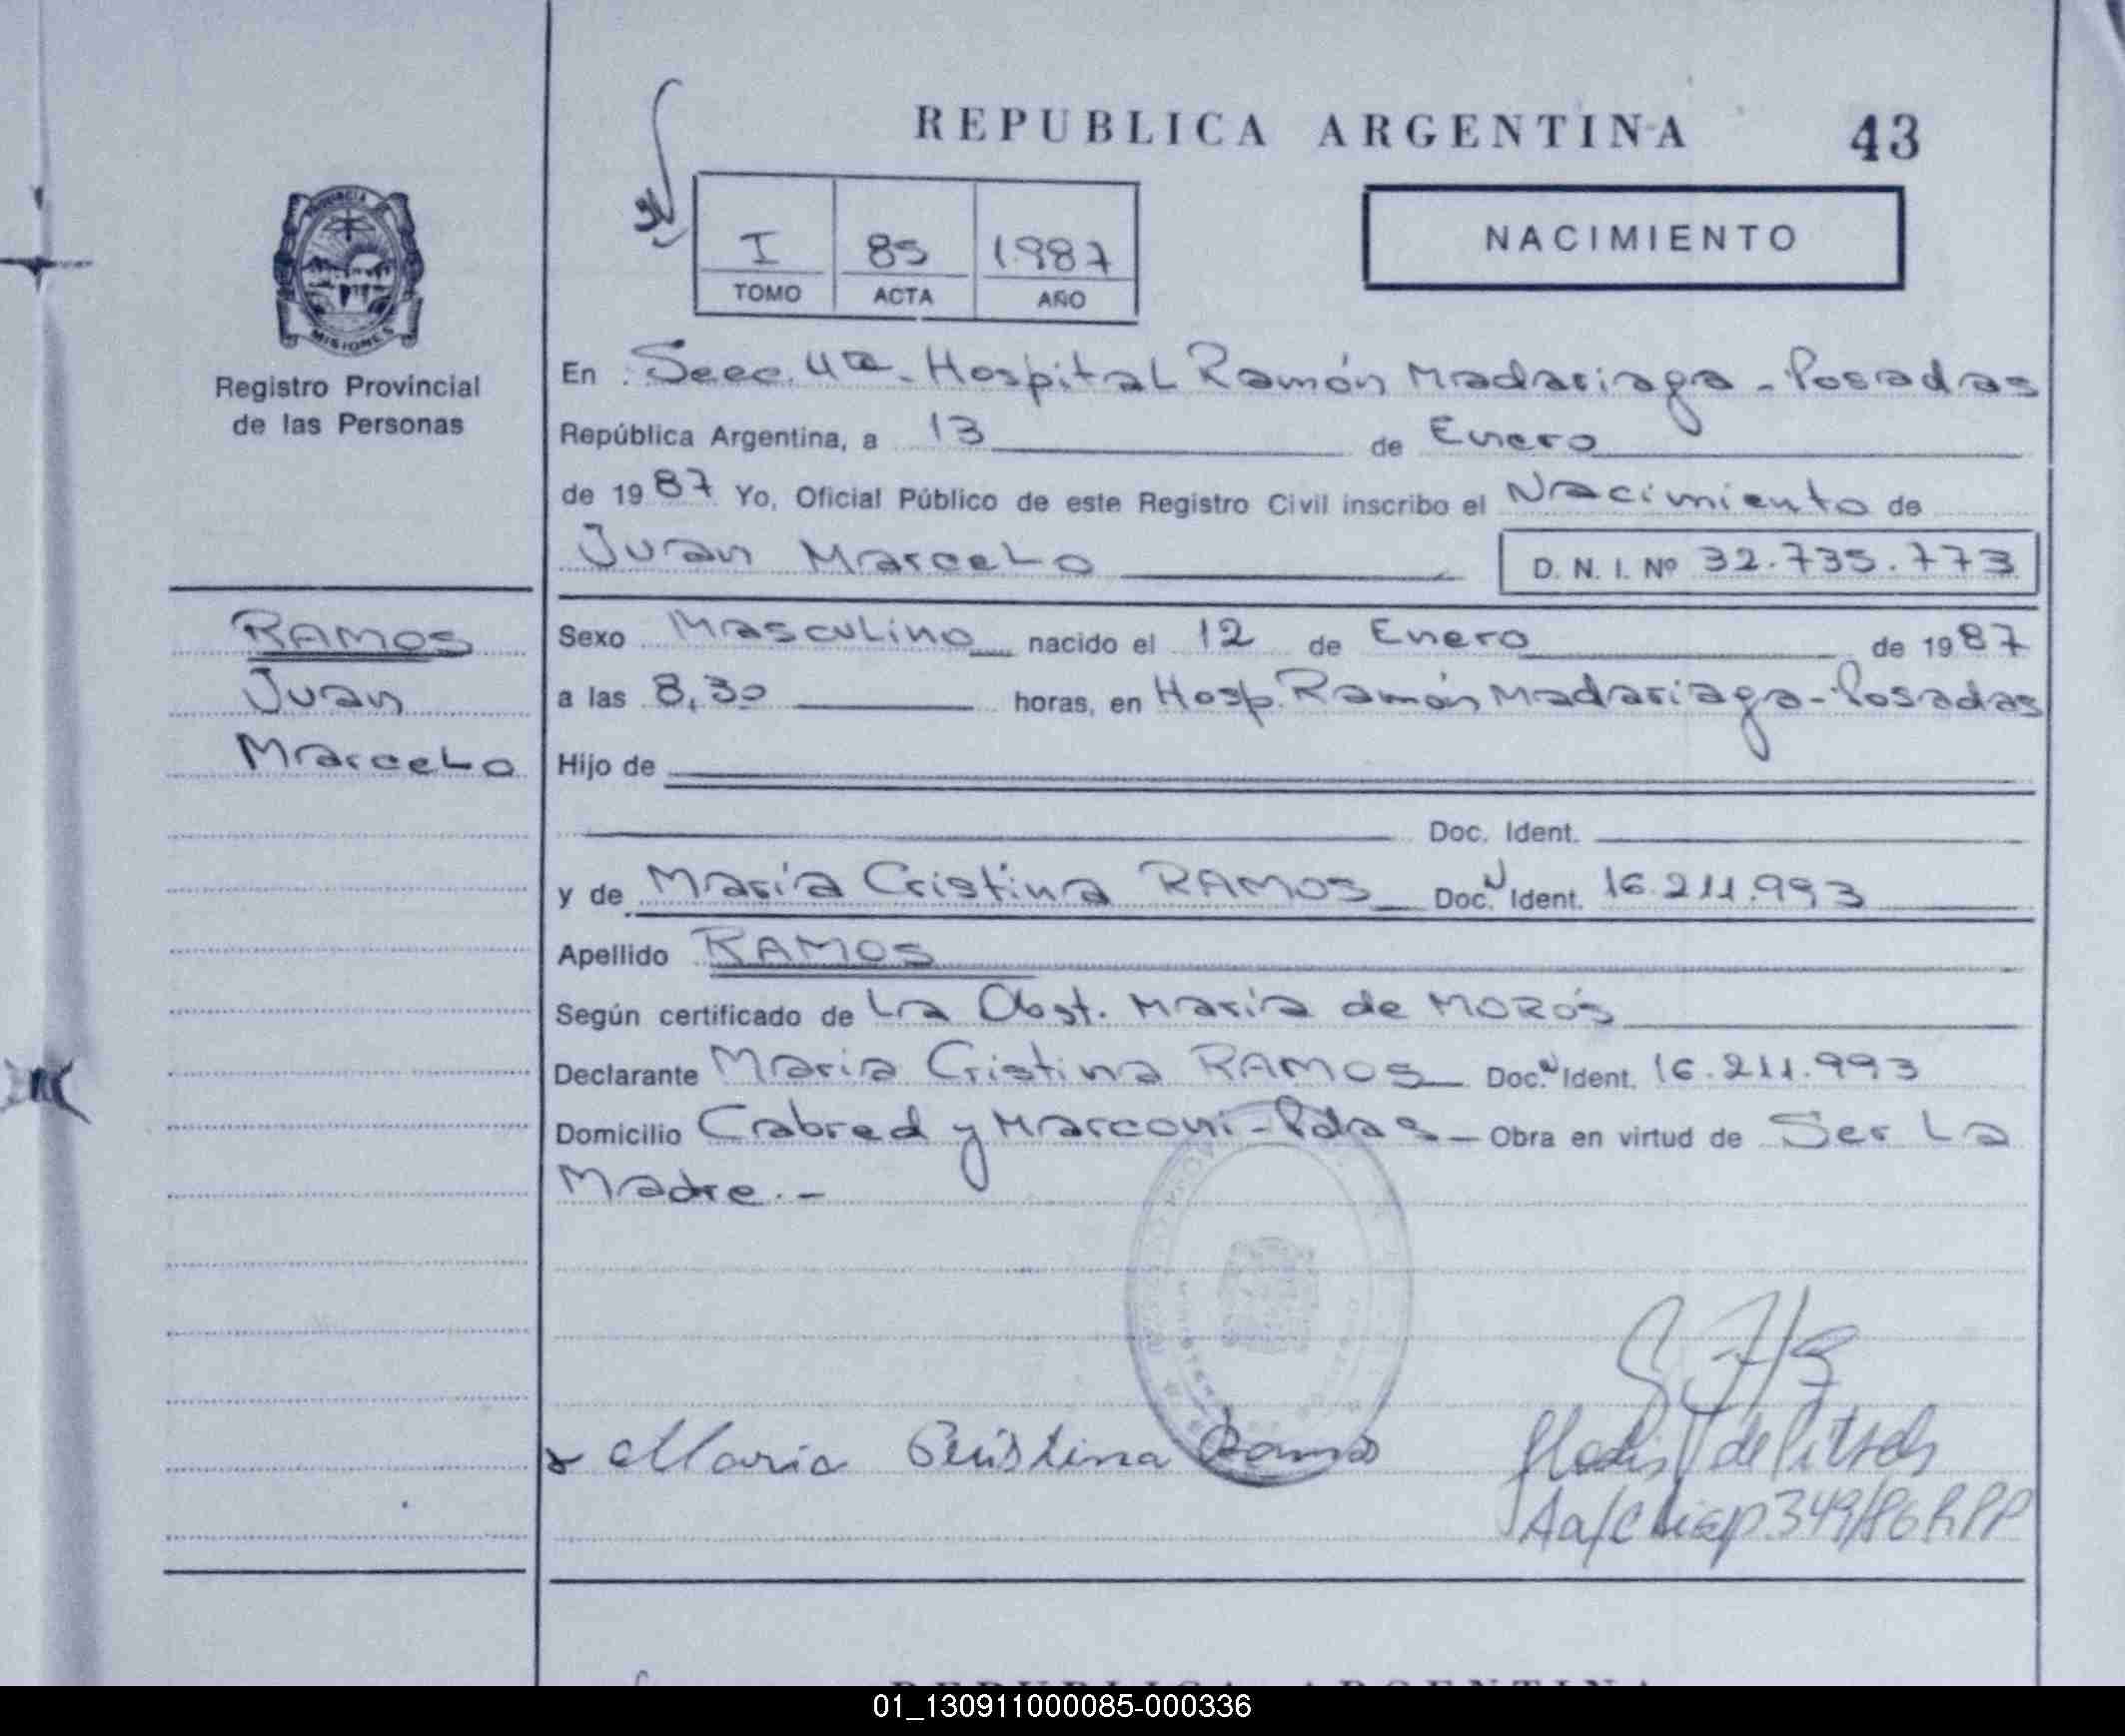 REPUBLICA ARGENTINA 43
NACIMIENTO
I 85 1987
TOMO ACTA AÑO
PROVINCIA
MISIONES
Registro Provincial
de las Personas
En Secc. 4ta - Hospital Ramón Madariaga - Posadas
República Argentina, a 13 de Enero
de 1987 Yo, Oficial Público de este Registro Civil inscribo el Nacimiento de
Juan Marcelo D. N. I. Nº 32.735.773
RAMOS
Juan
Marcelo
Sexo Masculino nacido el 12 de Enero de 1987
a las 8,30 horas, en Hosp. Ramón Madariaga - Posadas
Hijo de
Doc. Ident.
y de María Cristina RAMOS Doc. N Ident. 16.211.993
Apellido RAMOS
Según certificado de La Obst. María de MOROS
Declarante María Cristina RAMOS Doc. N Ident. 16.211.993
Domicilio Cabred y Marconi - Pdas - Obra en virtud de Ser La
Madre.-
Maria Cristina Ramos
349/86 RPP
01_130911000085-000336